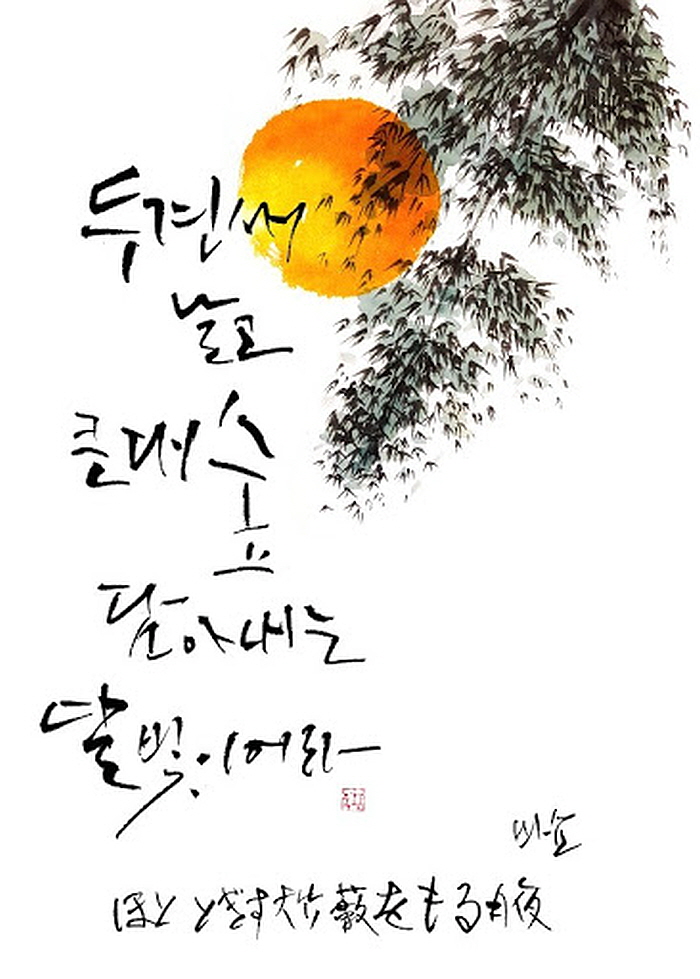 두견새
날고
큰대숲
달아내는
달빛이어라
바쇼
ほととぎす大竹藪をもる月夜